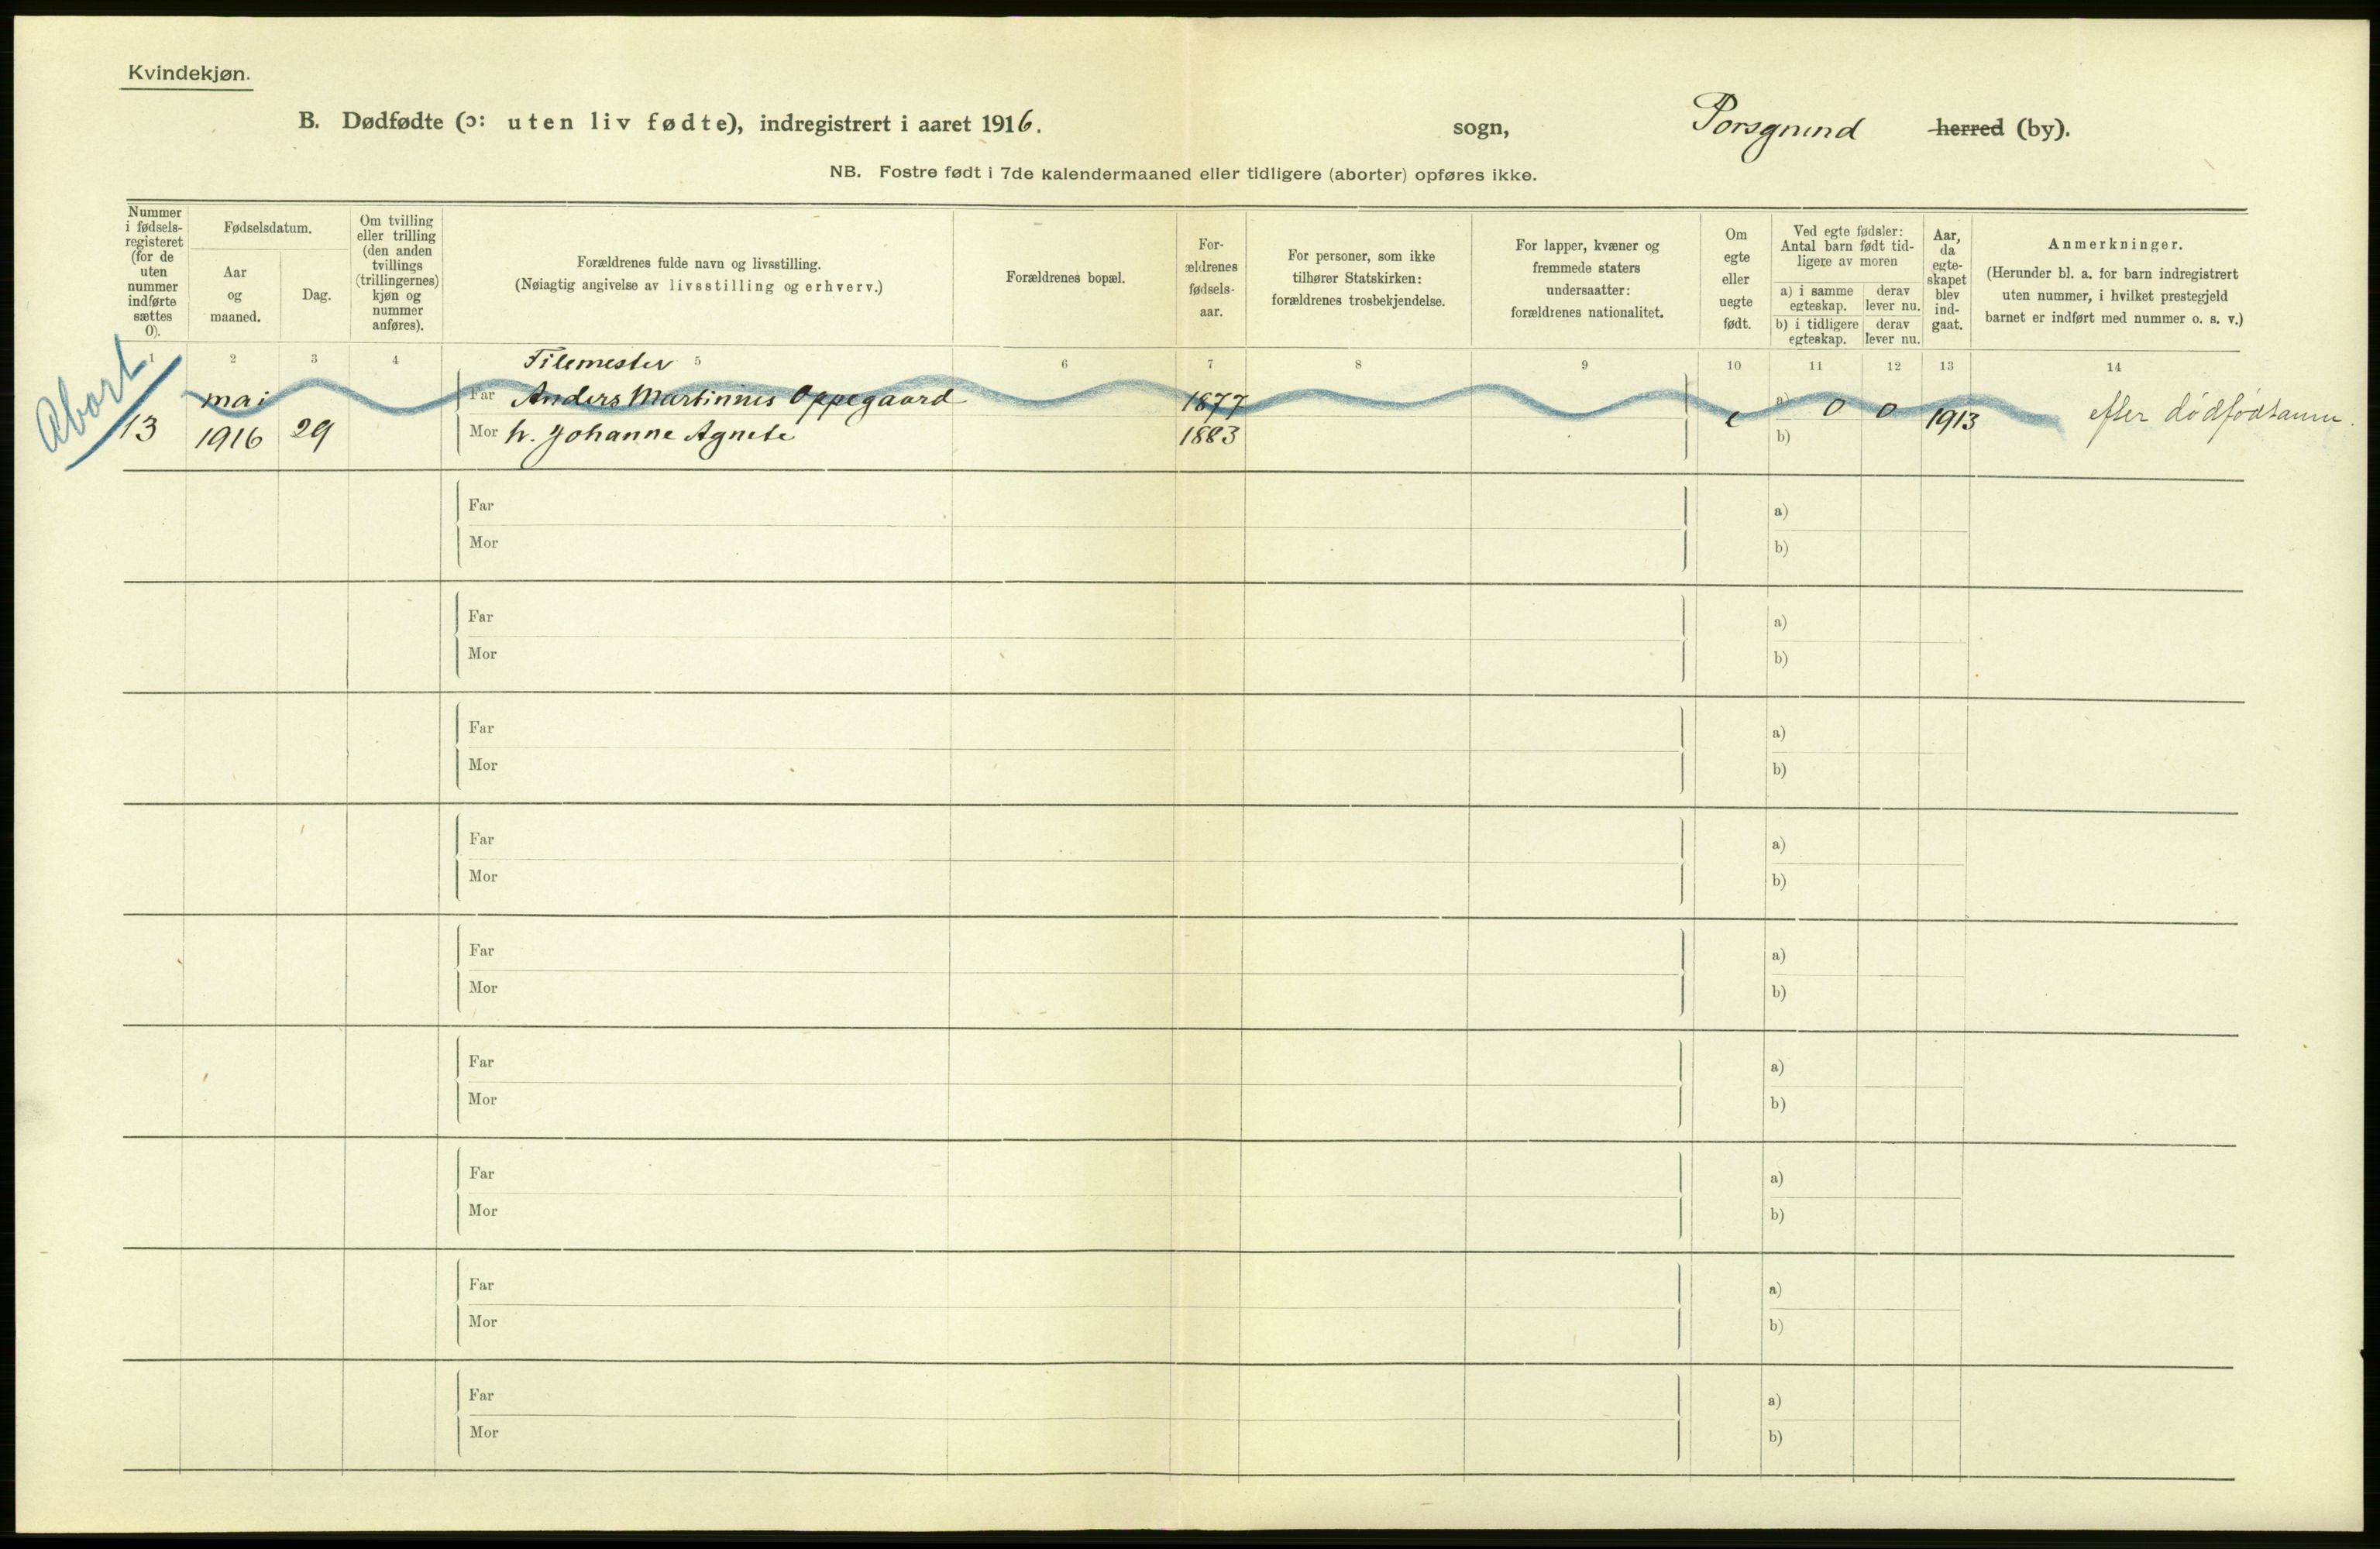 Kvindekjøn.
B. Dødfødte (ɔ: uten liv fødte), indregistrert i aaret 1916.
sogn, Porsgrund herred (by).
NB. Fostre født i 7de kalendermaaned eller tidligere (aborter) opføres ikke.
Nummer
i fødsels-
registeret
(for de
uten
nummer
indførte
sættes
0).
Fødselsdatum.
Aar
og
maaned.
Dag.
Om tvilling
eller trilling
(den anden
tvillings
(trillingernes)
kjøn og
nummer
anføres).
Forældrenes fulde navn og livsstilling.
(Nøiagtig angivelse av livsstilling og erhverv.)
Forældrenes bopæl.
For-
ældrenes
fødsels-
aar.
For personer, som ikke
tilhører Statskirken:
forældrenes trosbekjendelse.
For lapper, kvæner og
fremmede staters
undersaatter:
forældrenes nationalitet.
Om
egte
eller
uegte
født.
Ved egte fødsler:
Antal barn født tid-
ligere av moren
a) i samme
egteskap.
derav
lever nu.
b) i tidligere
egteskap.
derav
lever nu.
Aar,
da
egte-
skapet
blev
ind-
gaat.
Anmerkninger.
(Herunder bl. a. for barn indregistrert
uten nummer, i hvilket prestegjeld
barnet er indført med nummer o. s. v.)
1 2 3 4 5 6 7 8 9 10 11 12 13 14
Abort
Filemester
mai Far Anders Martinius Oppegaard 1877 a) 0 0
13 1916 29 Mor h. Johanne Agnete 1883 e b) 1913
efter dødfødtanm.
Far a)
Mor b)
Far a)
Mor b)
Far a)
Mor b)
Far a)
Mor b)
Far a)
Mor b)
Far a)
Mor b)
Far a)
Mor b)
Far a)
Mor b)
Far a)
Mor b)